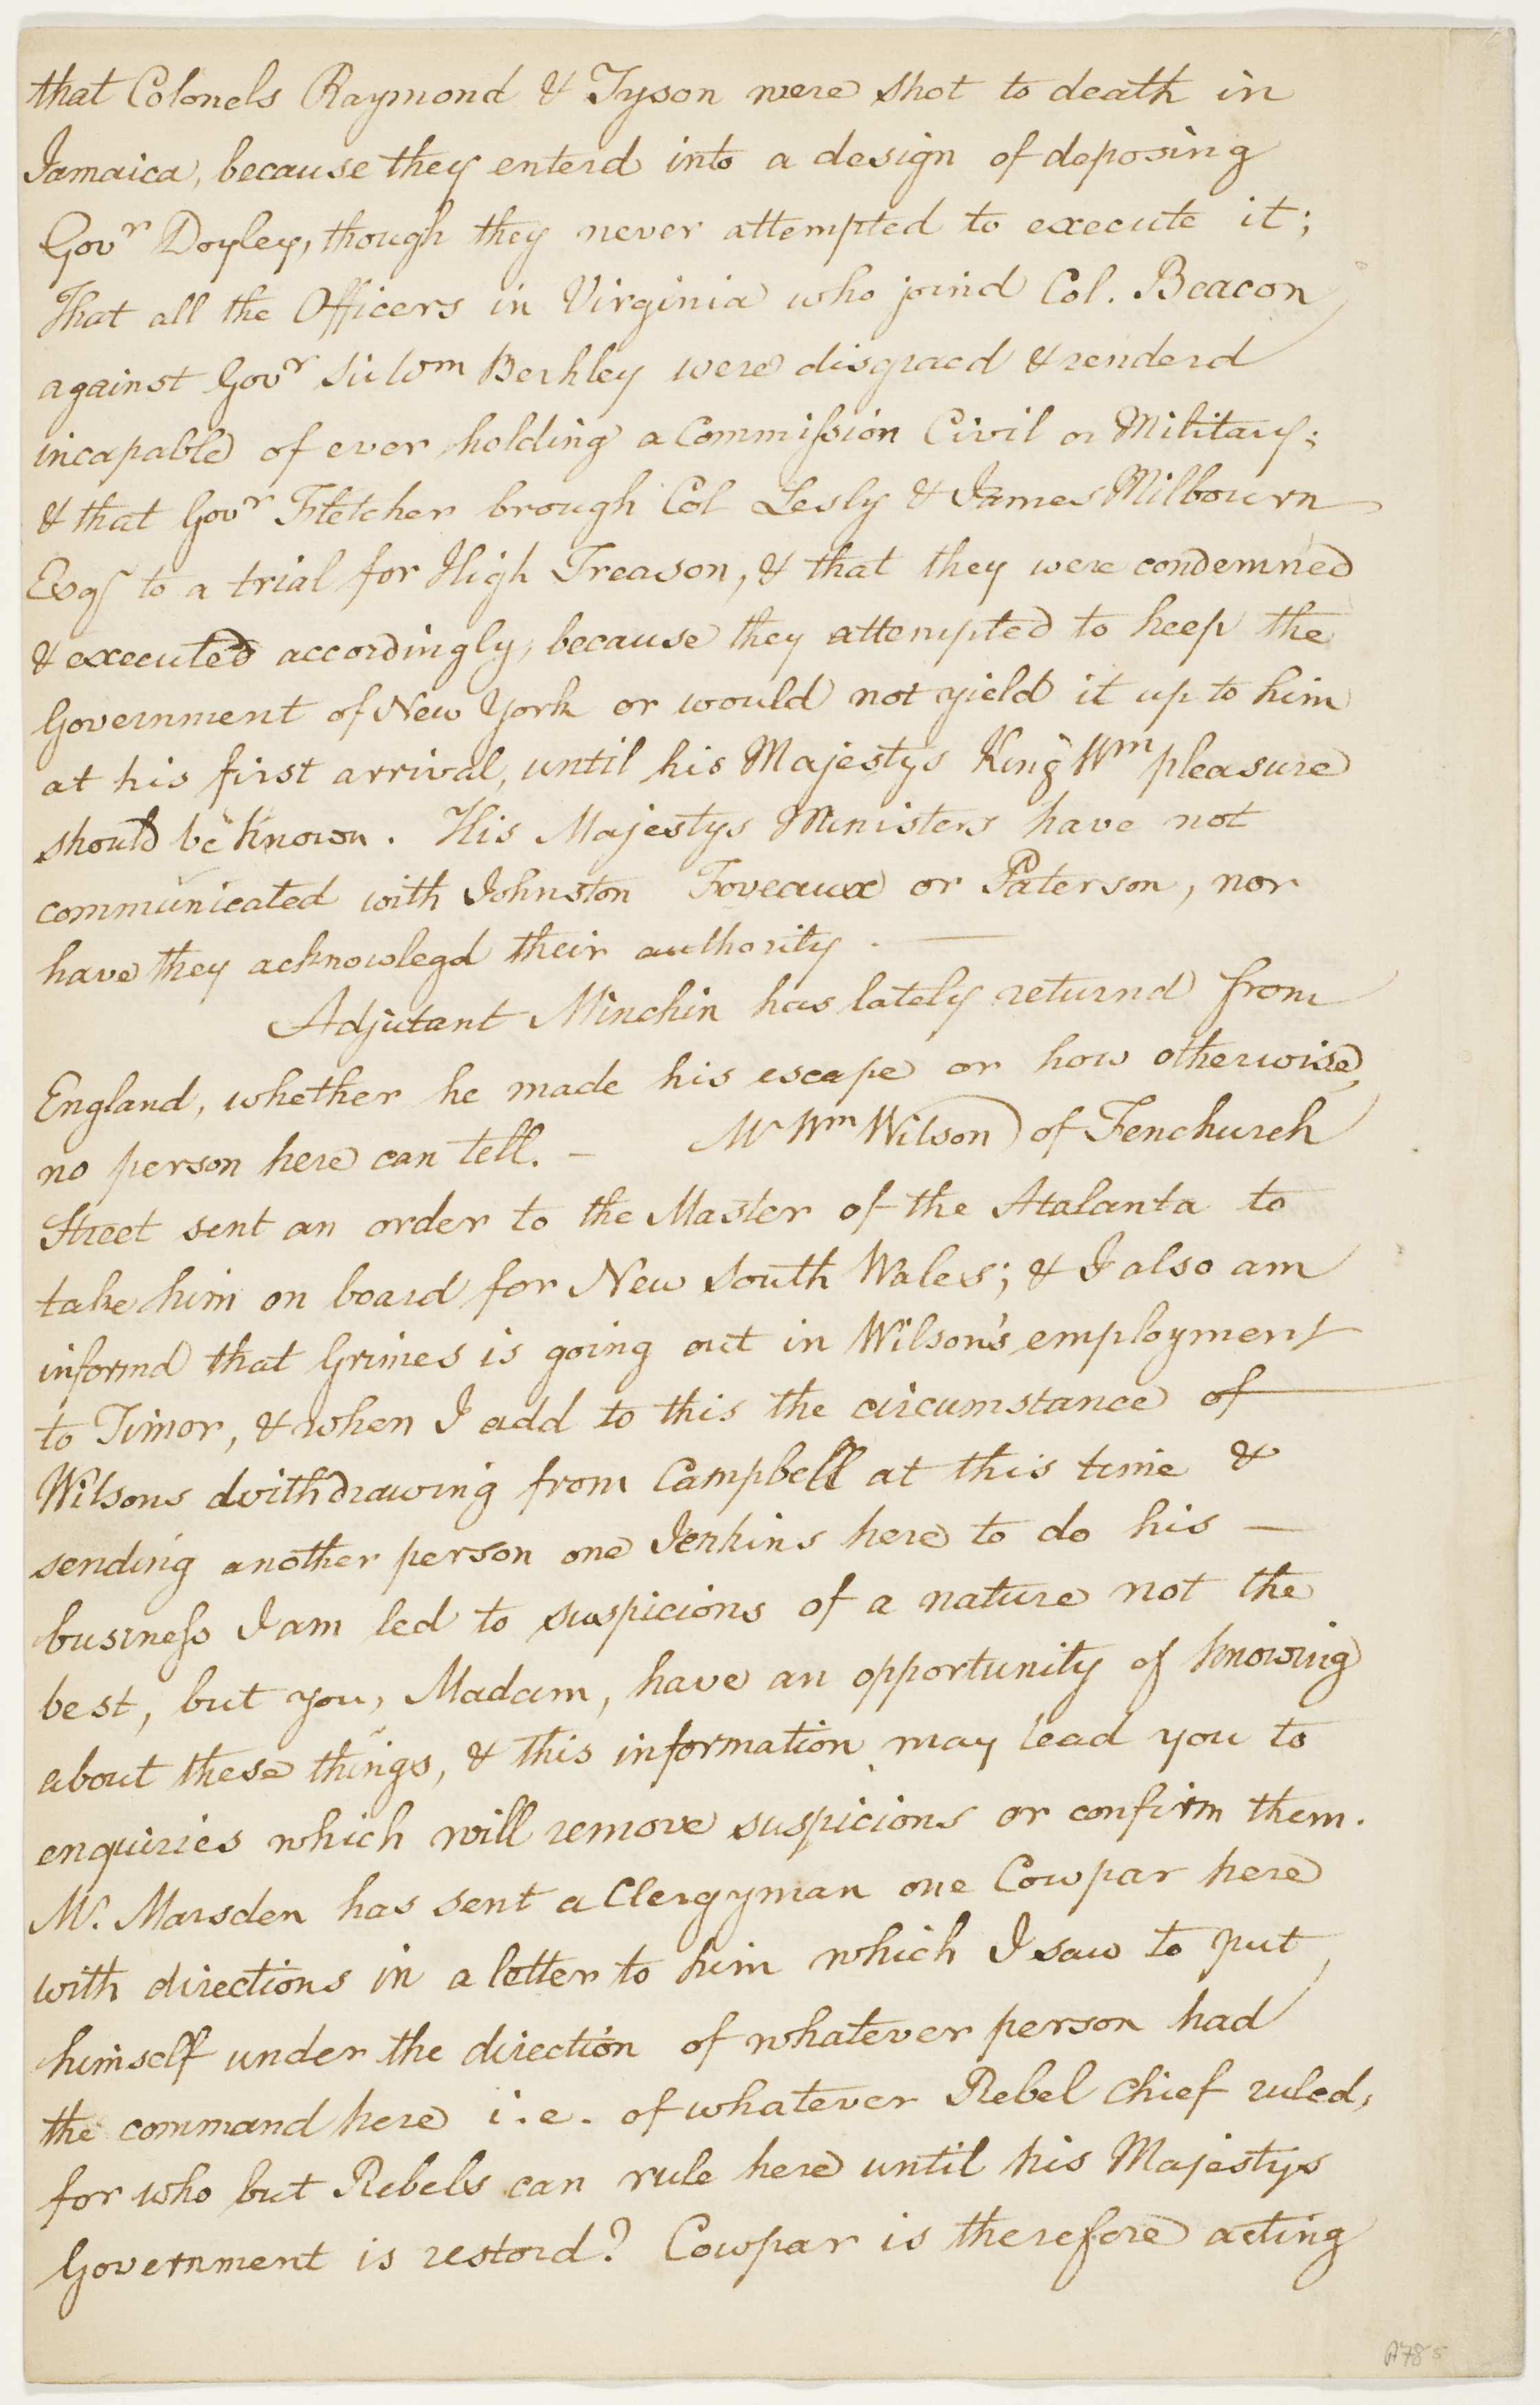 that Colonels Raymond & Tyson were shot to death in
Jamaica, because they enterd into a design of deposing
Govr Doyley, though they never attempted to execute it;
That all the Officers in Virginia who joind Col. Beacon
against Govr Sir Wm Berkley were disgracd & renderd
incapable of ever holding a Commission Civil or Military;
& that Govr Fletcher brough Col Lesly & James Milbourn
Esqs to a trial for High Treason, & that they were condemned
& executed accordingly, because they attempted to keep the
Government of New York or would not yield it up to him
at his first arrival, until his Majestys King Wm pleasure
should be known. His Majestys Ministers have not
communicated with Johnston Foveaux or Paterson, nor
have they acknowlegd their authority. —
Adjutant Minchin has lately returnd from
England, whether he made his escape or how otherwise,
no person here can tell. — Mr Wm Wilson of Fenchurch
Street sent an order to the Master of the Atalanta to
take him on board for New South Wales; & I also am
informd that Grimes is going out in Wilson's employment
to Timor, & when I add to this the circumstance of
Wilsons withdrawing from Campbell at this time &
sending another person one Jenkins here to do his —
business I am led to suspicions of a nature not the
best, but you, Madam, have an opportunity of knowing
about these things, & this information may lead you to
enquiries which will remove suspicions or confirm them.
Mr. Marsden has sent a Clergyman one Cowpar here
with directions in a letter to him which I saw to put
himself under the direction of whatever person had
the command here i.e. of whatever Rebel chief ruled,
for who but Rebels can rule here until his Majestys
Government is restord? Cowpar is therefore acting
A78 5